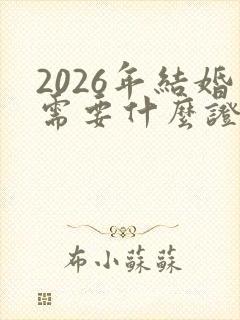 2026年結婚
需要什麼證
布小蘇蘇